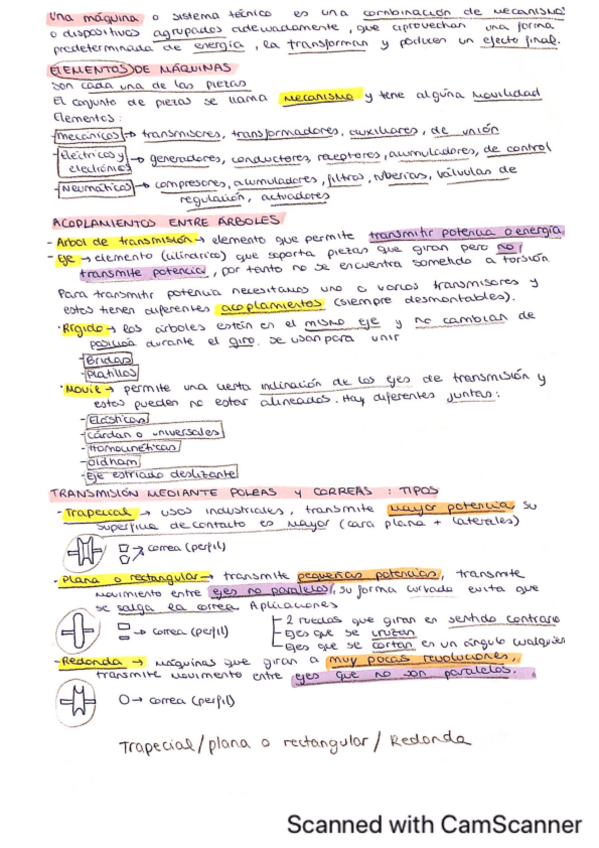 Una máquina o sistema técnico es una combinación de mecanismos
o dispositivos agrupados adecuadamente, que aprovechan una forma
predeterminada de energía, la transforman y producen un efecto final.
ELEMENTOS DE MÁQUINAS
Son cada una de las piezas
El conjunto de piezas se llama mecanismo y tiene alguna movilidad
Elementos:
-Mecánicos→ transmisores, transformadores, auxiliares, de unión
-Eléctricos y electrónicos → generadores, conductores, receptores, acumuladores, de control
-Neumáticos→ compresores, acumuladores, filtros, tuberías, válvulas de
regulación, actuadores
ACOPLAMIENTOS ENTRE ÁRBOLES
- Árbol de transmisión → elemento que permite transmitir potencia o energía
- Eje → elemento (cilíndrico) que soporta piezas que giran pero no
transmite potencia, por tanto no se encuentra sometido a torsión
Para transmitir potencia necesitamos uno o varios transmisores y
estos tienen diferentes acoplamientos (siempre desmontables).
·Rígido → los árboles están en el mismo eje y no cambian de
posición durante el giro. Se usan para unir
-Bridas
-Platillos
·Movil → permite una cierta inclinación de los ejes de transmisión y
estos pueden no estar alineados. Hay diferentes juntas:
-Elásticas
-Cárdan o universales
-Homocinéticas
-Oldham
-Eje estriado deslizante
TRANSMISIÓN MEDIANTE POLEAS Y CORREAS : TIPOS
- Trapecial → usos industriales, transmite mayor potencia, su
superficie de contacto es mayor (cara plana + laterales)
→ correa (perfil)
- Plana o rectangular → transmite pequeñas potencias, transmite
movimiento entre ejes no paralelos, su forma curvada evita que
se salga la correa. Aplicaciones
→ correa (perfil)
2 ruedas que giran en sentido contrario
Ejes que se cruzan
Ejes que se cortan en un ángulo cualquier
-Redonda → Máquinas que giran a muy pocas revoluciones,
transmite movimiento entre ejes que no son paralelos.
→ correa (perfil)
Trapecial/plana o rectangular / Redonda
Scanned with CamScanner